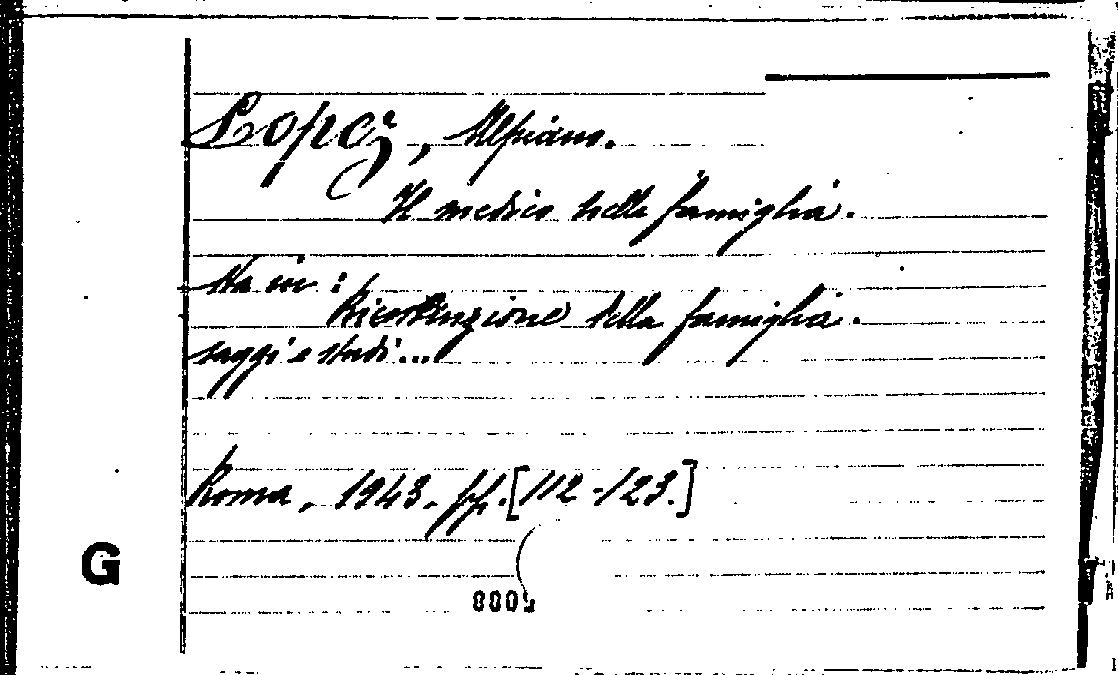 Lopez, Ulpiano.
Il medico nella famiglia.
Sta in:
Ricostruzione della famiglia.
saggi e studi...
Roma, 1943. pp. [112-123.]
G